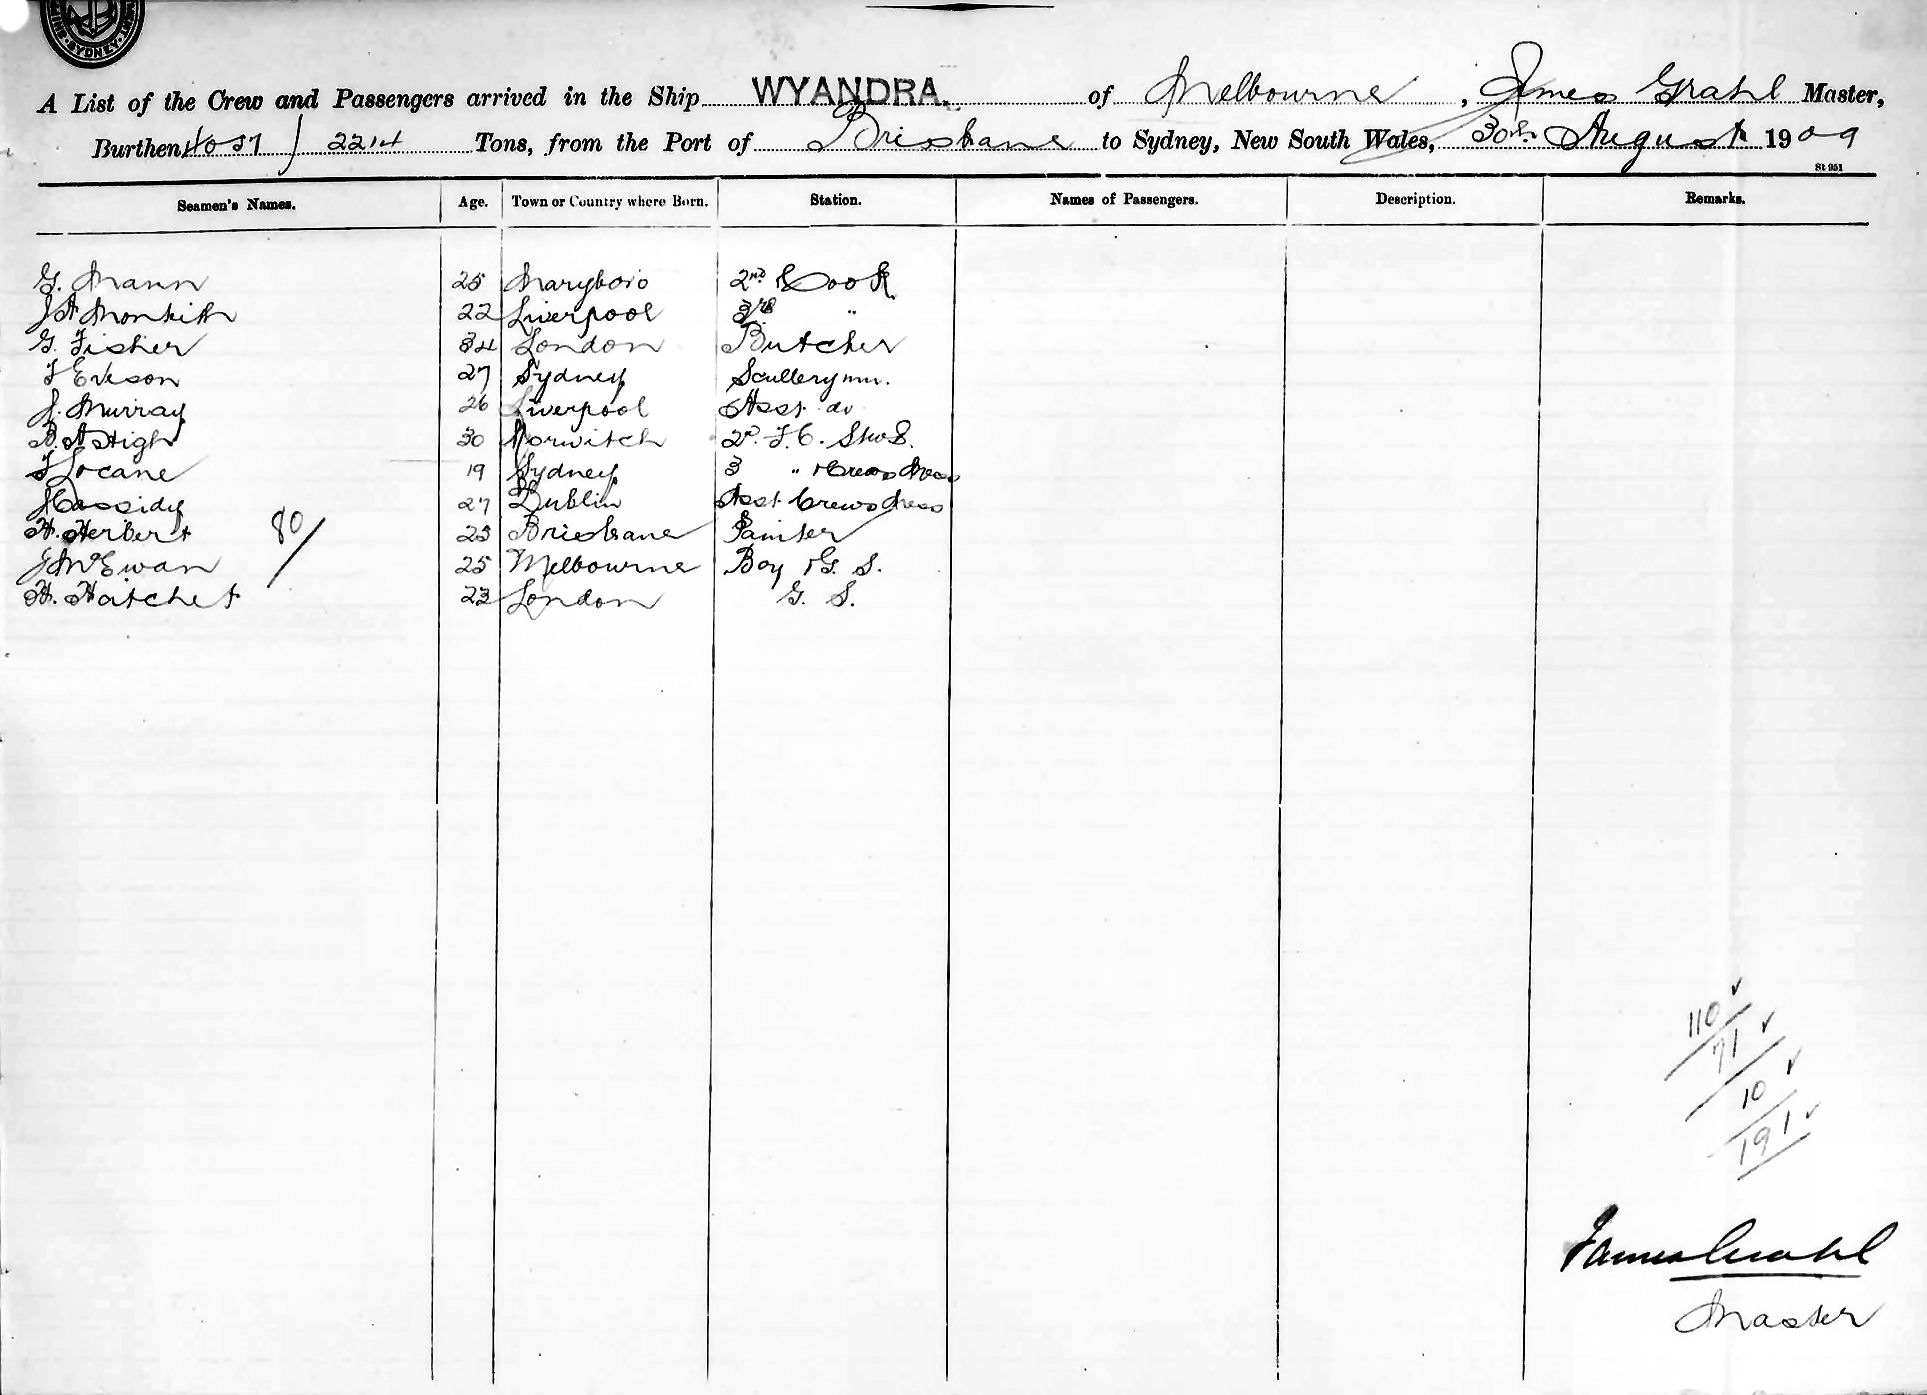 SYDNEY
A List of the Crew and Passengers arrived in the Ship WYANDRA. of Melbourne, James Grahl Master,
Burthen 4057 / 2214 Tons, from the Port of Brisbane to Sydney, New South Wales, 30th August 1909
St 951
Seamen's Names. Age. Town or Country where Born. Station. Names of Passengers. Description. Remarks.
G. Mann 25 Maryboro 2nd Cook
J A Monkith 22 Liverpool 3rd "
G. Fisher 34 London Butcher
T Eveson 27 Sydney Scullerymn.
J. Murray 26 Liverpool Asst. do
B. A High 30 Norwitch 2d. F. C. Stwd.
T Locane 19 Sydney 3 " Crews Mess
J Cassidy 27 Dublin Asst Crews Mess
H. Herbert 25 Brisbane Painter
80/
J McEwan 25 Melbourne Boy & G. S.
H. Hatchet 23 London G. S.
110
71
10
191
James Grahl
Master